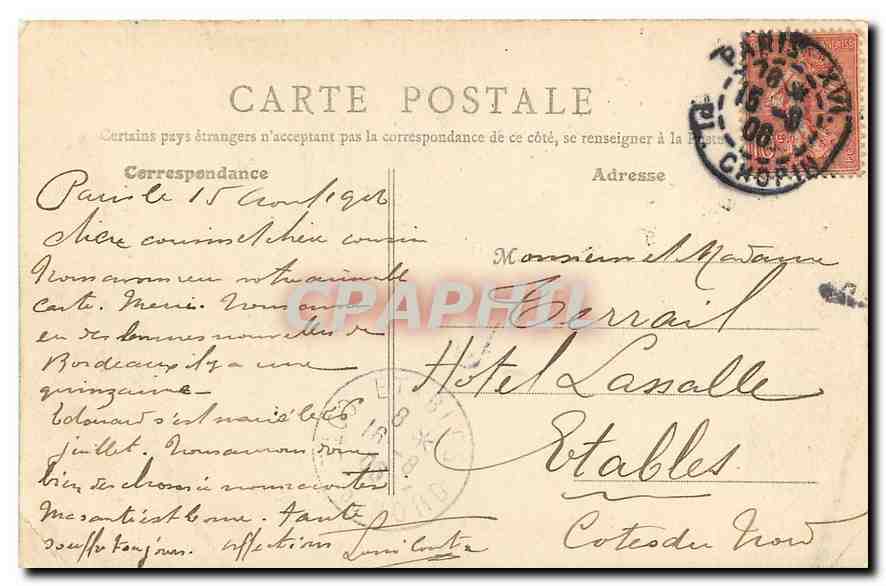 CARTE POSTALE
Certains pays étrangers n'acceptant pas la correspondance de ce côté, se renseigner à la Poste
Correspondance
Adresse
PARIS XVI
16
15 -8
06
PL. CHOPIN
Paris le 15 Aout 1906
chère cousine et chère cousin
Nous avons reçu votre aimable
carte. Merci. Nous avons
eu des bonnes nouvelles de
Bordeaux il y a une
quinzaine
Edouard s'est marié le
juillet. Nous avons donc
bien des choses à nous raconter
Ma santé est bonne. Tante
souffre toujours. affections
Monsieur et Madame
Terrail
Hôtel Lassalle
Etables
Cotes du Nord
CPAPHIL
8
16 -8